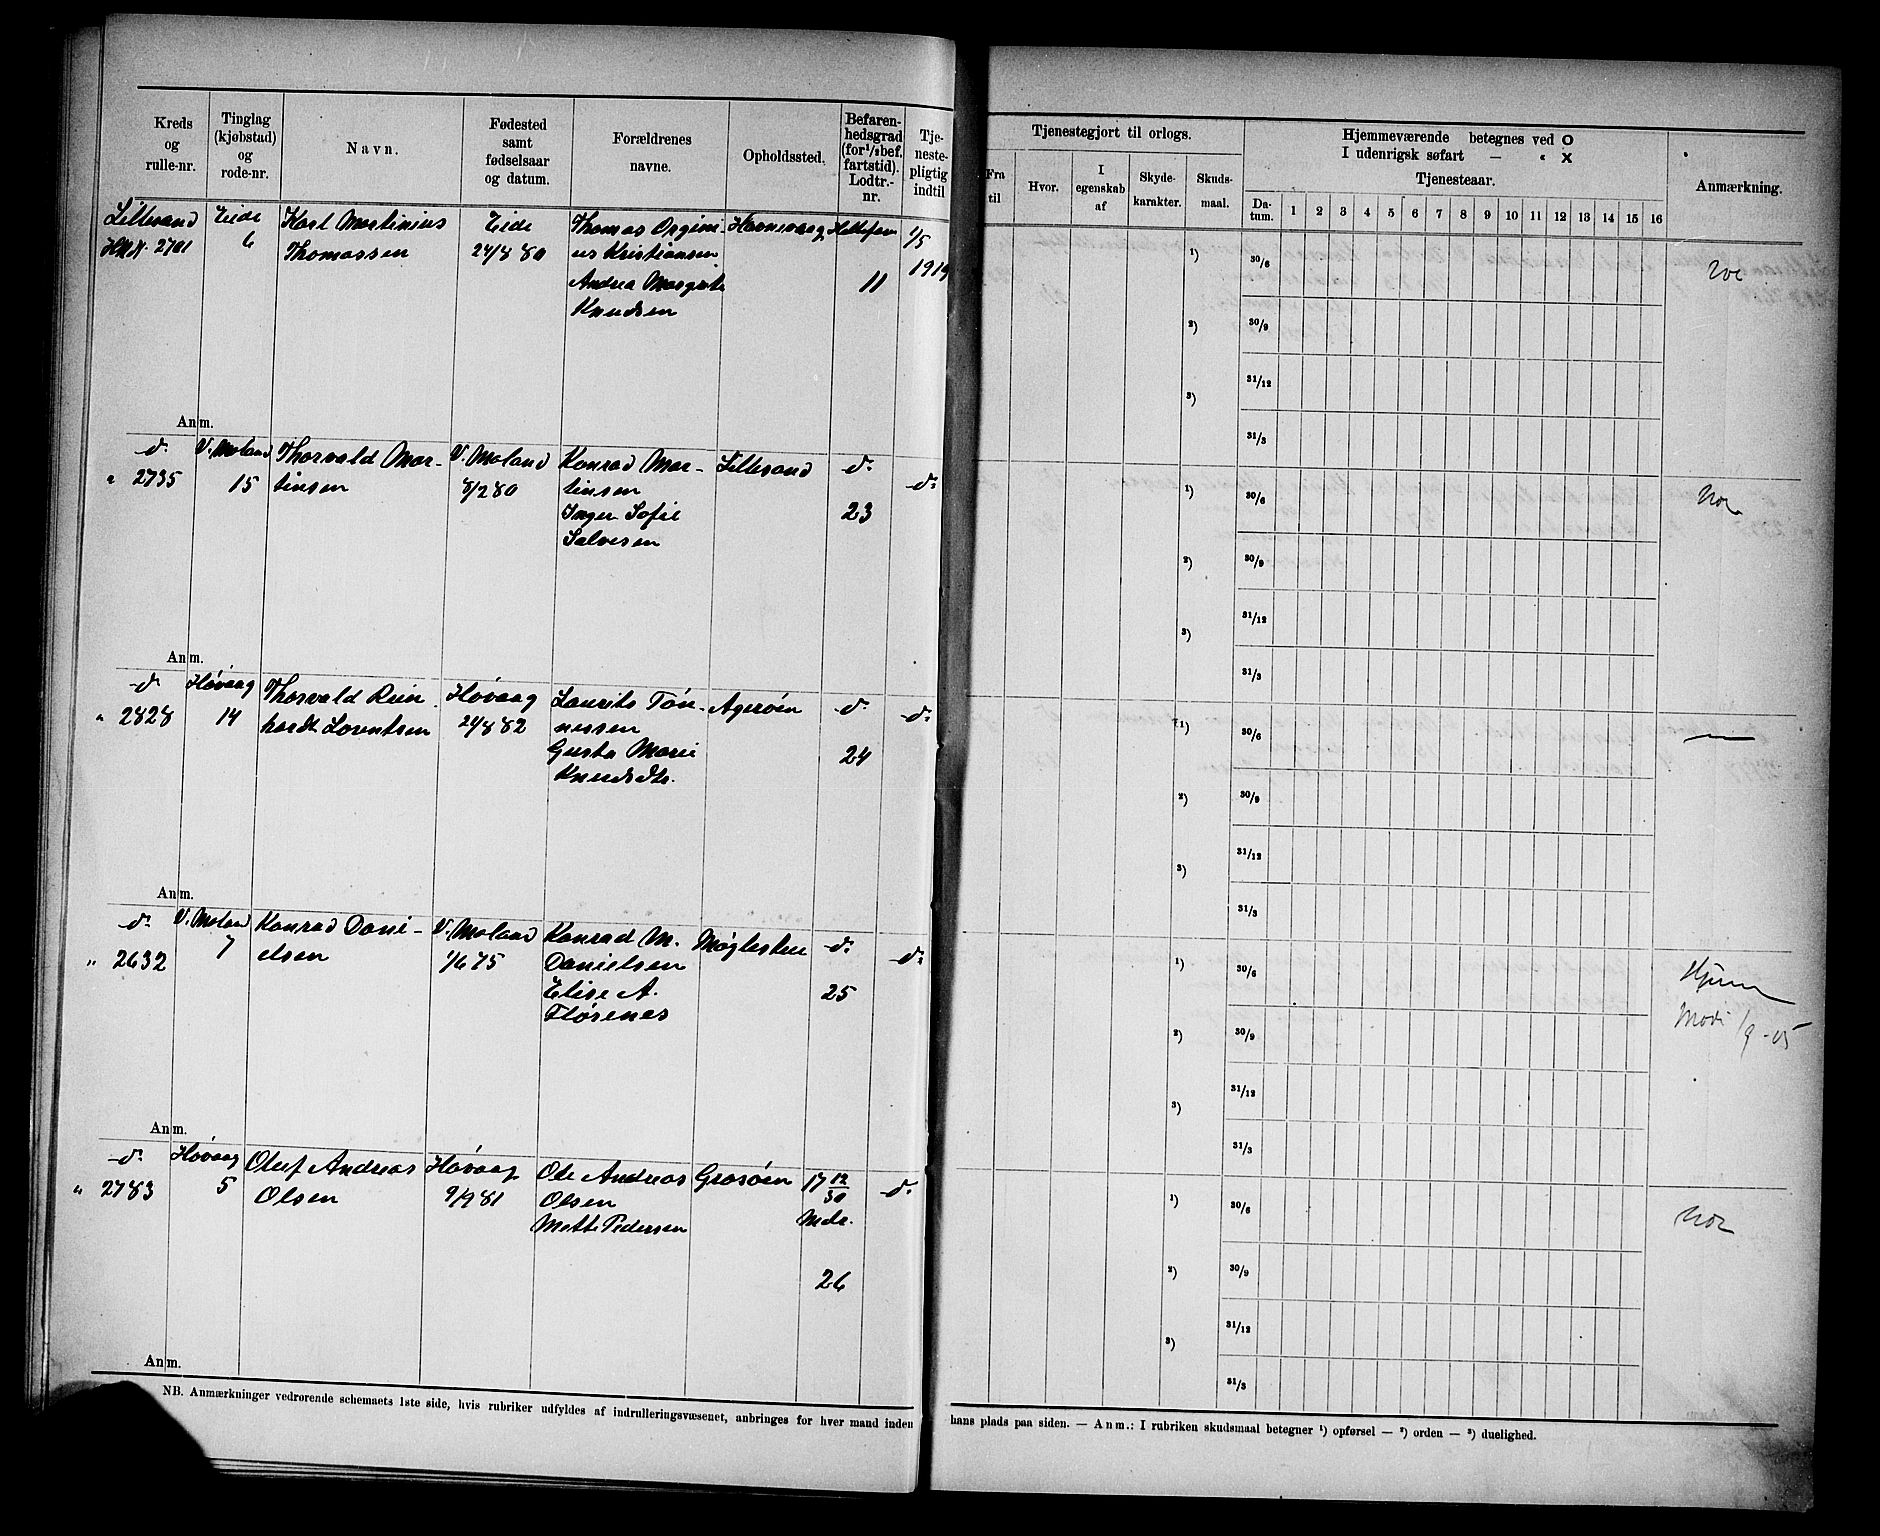 Kreds
og
rulle-nr.
Tinglag
(kjøbstad)
og
rode-nr.
Navn.
Fødested
samt
fødselsaar
og datum.
Forældrenes
navne.
Opholdssted.
Befaren-
hedsgrad
(for 1/2 bef.
fartstid).
Lodtr.-
nr.
Tje-
neste-
pligtig
indtil
Lillesand
2701
Eide
6
Karl Martinius
Thomassen
Eide
24/8 80
Thomas
Kristiansen
Andrea Margrete
Knudsen
11
1/5
1919
Anm.
d.
" 2735
V. Moland
15
Thorvald Mar-
tinsen
V. Moland
8/2 80
Konrad Mar-
tinsen
Inger Sofie
Salvesen
Lillesand
d.
23
d.
Anm.
d.
" 2828
Høvaag
14
Thorvald Rein
hardt Lorentsen
Høvaag
24/8 82
Laurits Tøn-
nessen
Gusta Marie
Knudsdtr.
Agerøen
d.
24
d.
Anm.
d.
" 2632
V. Moland
7
Konrad Dani-
elsen
V. Moland
1/6 75
Konrad M.
Danielsen
Elise A.
Flørenes
d.
25
d.
Anm.
d.
" 2783
Høvaag
5
Oluf Andreas
Olsen
Høvaag
9/9 81
Ole Andreas
Olsen
Mette Pedersen
Grosøen
17 12/30
Mdr.
26
d.
Anm.
NB. Anmærkninger vedrørende schemaets 1ste side, hvis rubriker udfyldes af indrulleringsvæsenet, anbringes for hver mand inden
Tjenestegjort til orlogs.
Fra
til
Hvor.
I
egenskab
af
Skyde-
karakter.
Skuds-
maal.
Hjemmeværende betegnes ved O
I udenrigsk søfart — " X
Tjenesteaar.
Da-
tum.
1 2 3 4 5 6 7 8 9 10 11 12 13 14 15 16
Anmærkning.
1) 30/6
2) 30/9
31/12
3)
31/3
1) 30/6
2) 30/9
31/12
3)
31/3
1) 30/6
2) 30/9
31/12
3)
31/3
1) 30/6
Hjem
2) 30/9
1/9-05
31/12
3)
31/3
1) 30/6
2) 30/9
31/12
3)
31/3
hans plads paa siden. — Anm.: I rubriken skudsmaal betegner 1) opførsel — 2) orden — 3) duelighed.